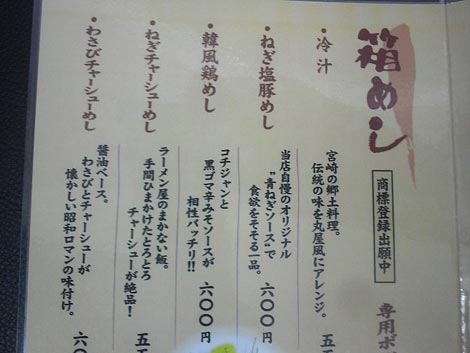 箱めし
商標登録出願中
専用ボ
・冷汁
宮崎の郷土料理。
伝統の味を丸屋風にアレンジ。
・ねぎ塩豚めし
当店自慢のオリジナル
“青ねぎソース”で
食欲をそそる一品。
六〇〇円
・韓風鶏めし
コチジャンと
黒ゴマ辛みそソースが
相性バッチリ!!
六〇〇円
・ねぎチャーシューめし
ラーメン屋のまかない飯。
手間ひまかけたとろとろ
チャーシューが絶品！
五
・わさびチャーシューめし
醤油ベース。
わさびとチャーシューが
懐かしい昭和ロマンの味付け。
六〇